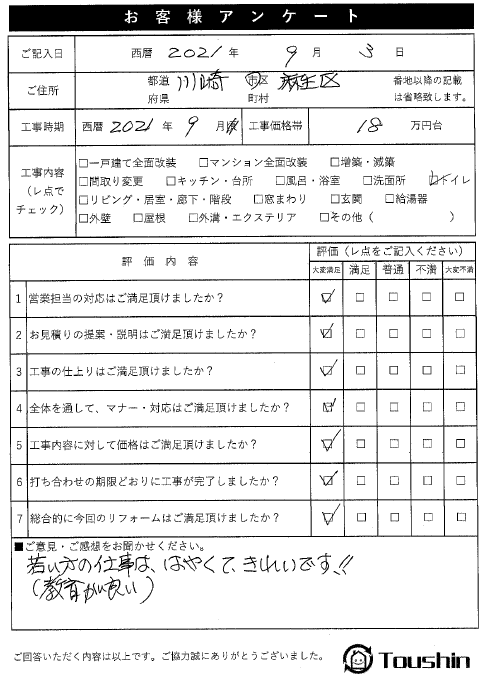 お客様アンケート
ご記入日 西暦 2021 年 9 月 3 日
ご住所 都道府県 川崎 市区町村 麻生区 番地以降の記載は省略致します。
工事時期 西暦 2021 年 9 月頃 工事価格帯 18 万円台
工事内容（レ点でチェック）
□一戸建て全面改装 □マンション全面改装 □増築・減築
□間取り変更 □キッチン・台所 □風呂・浴室 □洗面所 ☑トイレ
□リビング・居室・廊下・階段 □窓まわり □玄関 □給湯器
□外壁 □屋根 □外溝・エクステリア □その他（ ）
評価内容 評価（レ点をご記入ください）
大変満足 満足 普通 不満 大変不満
1 営業担当の対応はご満足頂けましたか？ ☑ □ □ □ □
2 お見積りの提案・説明はご満足頂けましたか？ ☑ □ □ □ □
3 工事の仕上りはご満足頂けましたか？ ☑ □ □ □ □
4 全体を通して、マナー・対応はご満足頂けましたか？ ☑ □ □ □ □
5 工事内容に対して価格はご満足頂けましたか？ ☑ □ □ □ □
6 打ち合わせの期限どおりに工事が完了しましたか？ ☑ □ □ □ □
7 総合的に今回のリフォームはご満足頂けましたか？ ☑ □ □ □ □
■ご意見・ご感想をお聞かせください。
若い方の仕事は、はやくて、きれいです!!
（教育が良い）
ご回答いただく内容は以上です。ご協力誠にありがとうございました。
Toushin